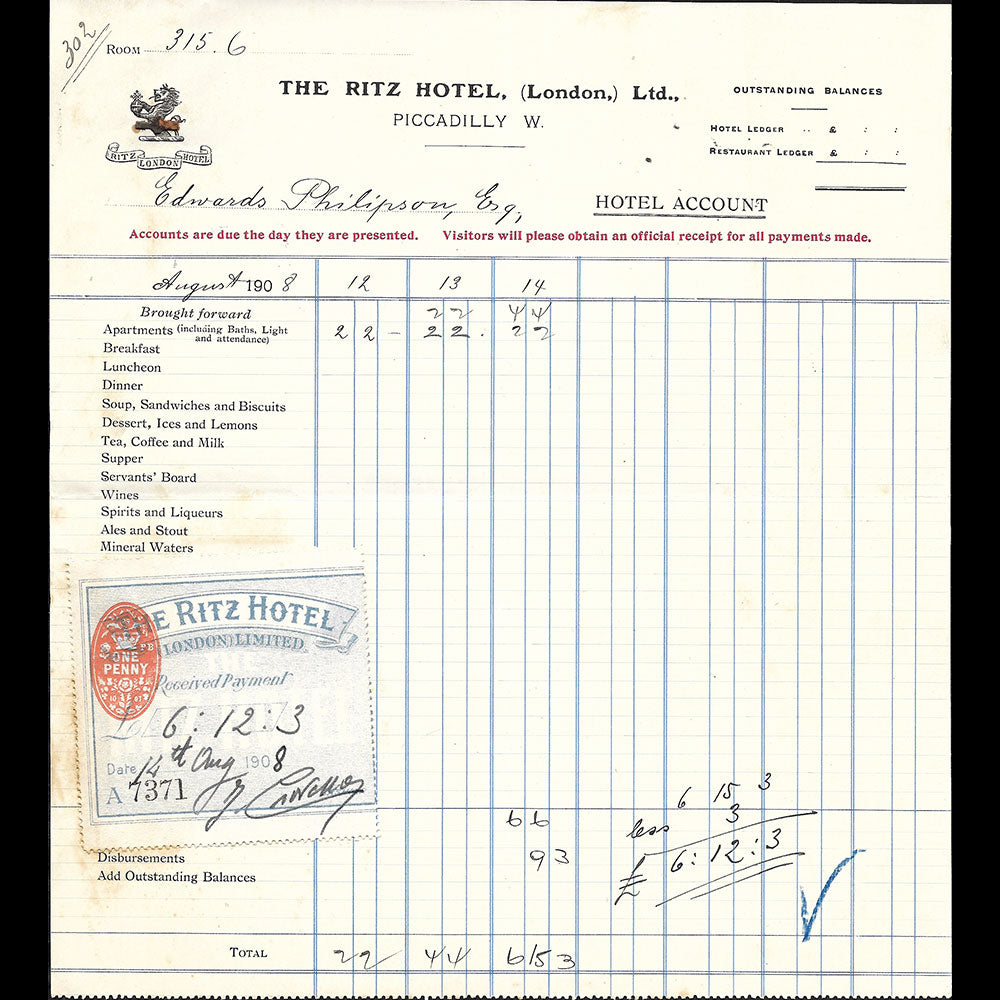 302
ROOM 315.6
THE RITZ HOTEL, (London,) Ltd.,
PICCADILLY W.
OUTSTANDING BALANCES
HOTEL LEDGER .. £ : :
RESTAURANT LEDGER £ : :
RITZ LONDON HOTEL
Edwards Philipson, Esq,
HOTEL ACCOUNT
Accounts are due the day they are presented. Visitors will please obtain an official receipt for all payments made.
August 1908 12 13 14
Brought forward 2 2 4 4
Apartments (including Baths, Light and attendance) 2 2 - 2 2 . 2 2
Breakfast
Luncheon
Dinner
Soup, Sandwiches and Biscuits
Dessert, Ices and Lemons
Tea, Coffee and Milk
Supper
Servants' Board
Wines
Spirits and Liqueurs
Ales and Stout
Mineral Waters
E RITZ HOTEL
(LONDON) LIMITED
ONE PENNY
Received Payment
£ 6 : 12 : 3
Date 14th Aug 1908
A 7371
6 15 3
6 6
less 3
£ 6 : 12 : 3
Disbursements 9 3
Add Outstanding Balances
TOTAL 2 2 4 4 6 15 3